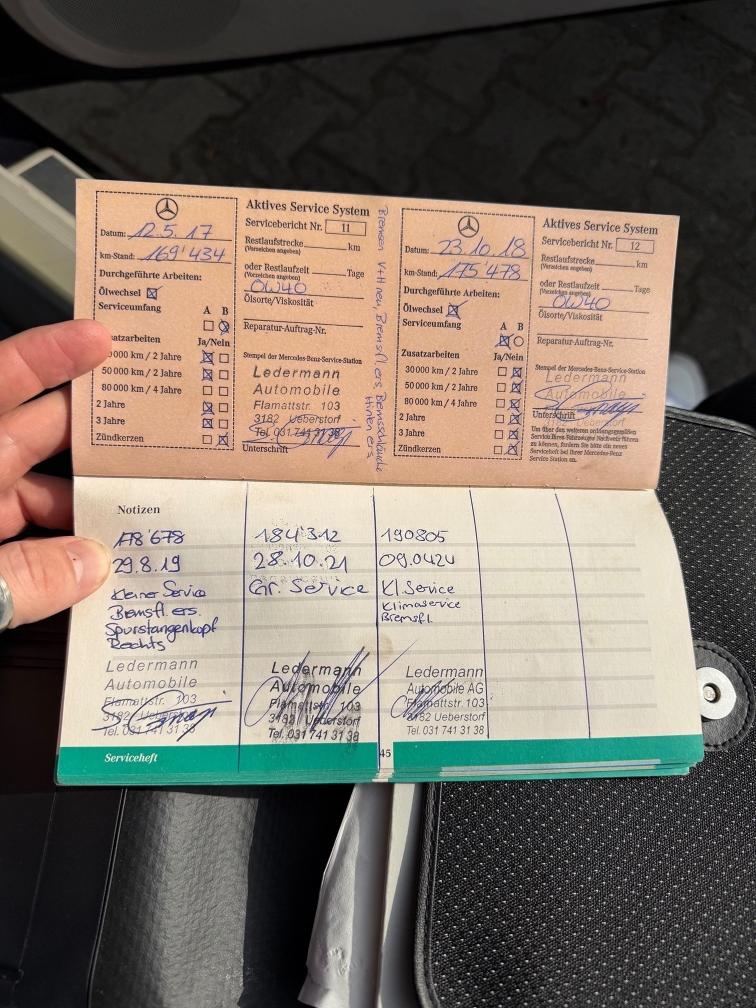 Datum: 12.5.17
km-Stand: 169'434
Durchgeführte Arbeiten:
Ölwechsel
Serviceumfang A B
Zusatzarbeiten Ja/Nein
000 km / 2 Jahre
50 000 km / 2 Jahre
80 000 km / 4 Jahre
2 Jahre
3 Jahre
Zündkerzen
Aktives Service System
Servicebericht Nr. 11
Restlaufstrecke km
(Vorzeichen angeben)
oder Restlaufzeit Tage
(Vorzeichen angeben)
0W40
Ölsorte/Viskosität
Reparatur-Auftrag-Nr.
Stempel der Mercedes-Benz-Service-Station
Ledermann
Automobile
Flamattstr. 103
3182 Ueberstorf
Tel. 031 741 31 38
Unterschrift
Bremsen V+H neu Bremsfl. ers. Bremsschläuche
Hinten ers.
Datum: 23.10.18
km-Stand: 175'478
Durchgeführte Arbeiten:
Ölwechsel
Serviceumfang A B
Zusatzarbeiten Ja/Nein
30 000 km / 2 Jahre
50 000 km / 2 Jahre
80 000 km / 4 Jahre
2 Jahre
3 Jahre
Zündkerzen
Aktives Service System
Servicebericht Nr. 12
Restlaufstrecke km
(Vorzeichen angeben)
oder Restlaufzeit Tage
(Vorzeichen angeben)
0W40
Ölsorte/Viskosität
Reparatur-Auftrag-Nr.
Stempel der Mercedes-Benz-Service-Station
Ledermann
Automobile
Unterschrift
Um über den weiteren ordnungsgemäßen
Service Ihres Fahrzeuges Nachweis führen
zu können, fordern Sie bitte ein neues
Serviceheft bei Ihrer Mercedes-Benz
Service Station an.
Notizen
178'678
29.8.19
Kleiner Service
Bremsfl. ers.
Spurstangenkopf
Rechts
Ledermann
Automobile
Flamattstr. 103
3182 Ueberstorf
Tel. 031 741 31 38
184'312
28.10.21
Gr. Service
Ledermann
Automobile
Flamattstr. 103
3182 Ueberstorf
Tel. 031 741 31 38
190805
09.0424
Kl. Service
Klimaservice
Bremsfl.
Ledermann
Automobile AG
Flamattstr. 103
3182 Ueberstorf
Tel. 031 741 31 38
Serviceheft
45